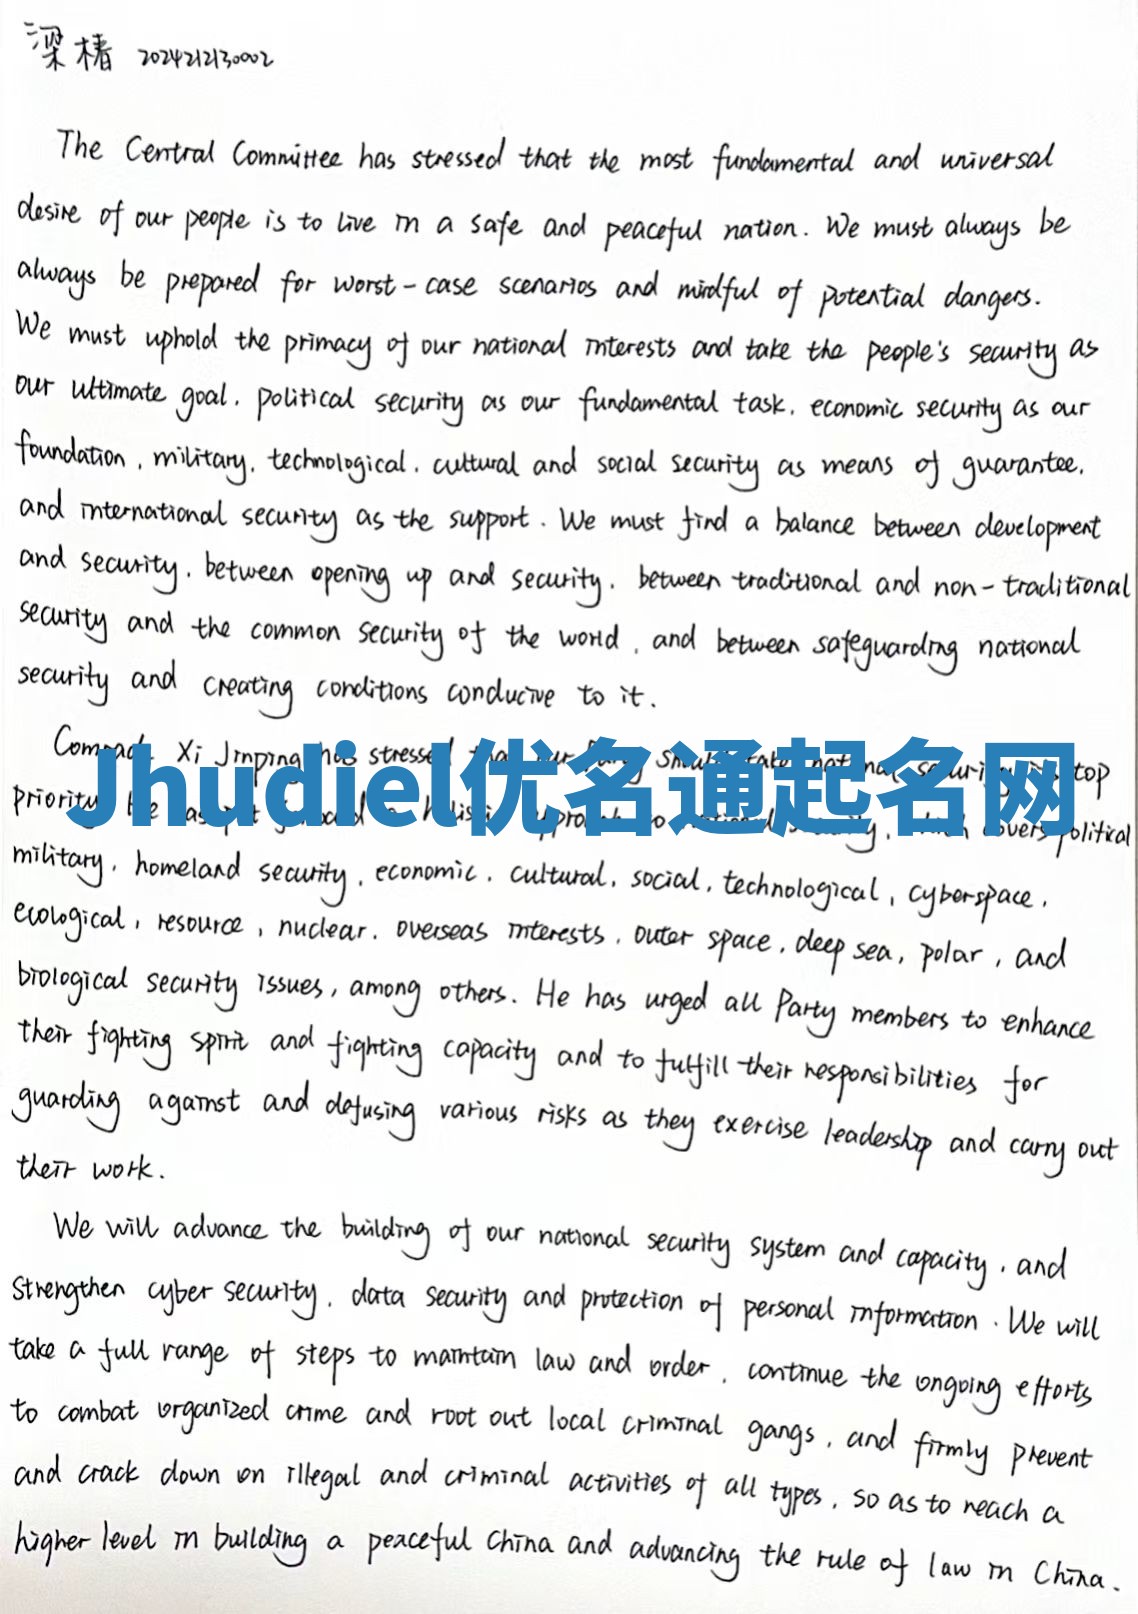 梁椿 2024212130002
The Central Committee has stressed that the most fundamental and universal
desire of our people is to live in a safe and peaceful nation. We must always be
always be prepared for worst-case scenarios and mindful of potential dangers.
We must uphold the primacy of our national interests and take the people's security as
our ultimate goal, political security as our fundamental task, economic security as our
foundation, military, technological, cultural and social security as means of guarantee,
and international security as the support. We must find a balance between development
and security, between opening up and security, between traditional and non-traditional
security and the common security of the world, and between safeguarding national
security and creating conditions conducive to it.
Xi Jinping has stressed top
Jhudiel优名通起名网
priority covers political
military, homeland security, economic, cultural, social, technological, cyberspace,
ecological, resource, nuclear, overseas interests, outer space, deep sea, polar, and
biological security issues, among others. He has urged all Party members to enhance
their fighting spirit and fighting capacity and to fulfill their responsibilities for
guarding against and defusing various risks as they exercise leadership and carry out
their work.
We will advance the building of our national security system and capacity, and
strengthen cyber security, data security and protection of personal information. We will
take a full range of steps to maintain law and order, continue the ongoing efforts
to combat organized crime and root out local criminal gangs, and firmly prevent
and crack down on illegal and criminal activities of all types, so as to reach a
higher level in building a peaceful China and advancing the rule of law in China.